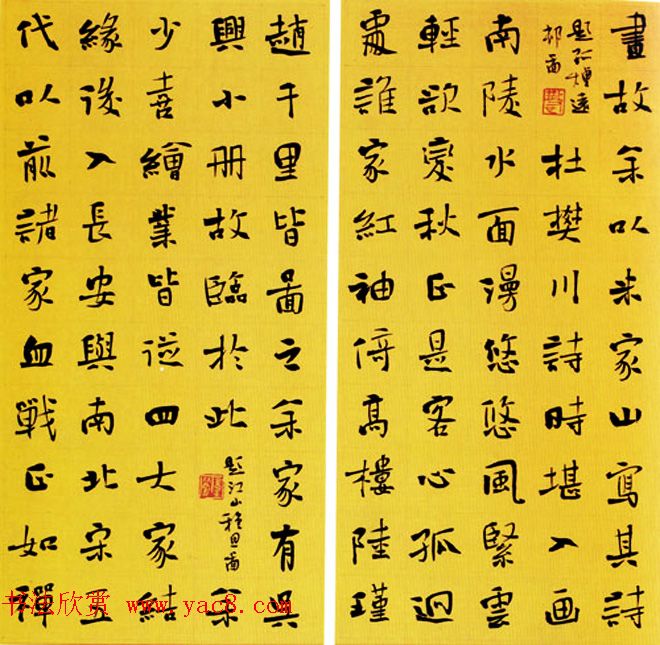 畫故余以米家山寫其詩
題孤煙遠
邨圖
杜樊川詩時堪入画
南陵水面漫悠悠風緊雲
輕欲變秋正是客心孤迥
處誰家紅袖倚高樓陸瑾
趙千里皆圖之余家有吳
興小册故臨於此
題江山
穐思圖
余
少喜繪業皆從四大家結
緣後入長安與南北宋五
代以前諸家血戰正如禪
书法欣赏 www.yac8.com